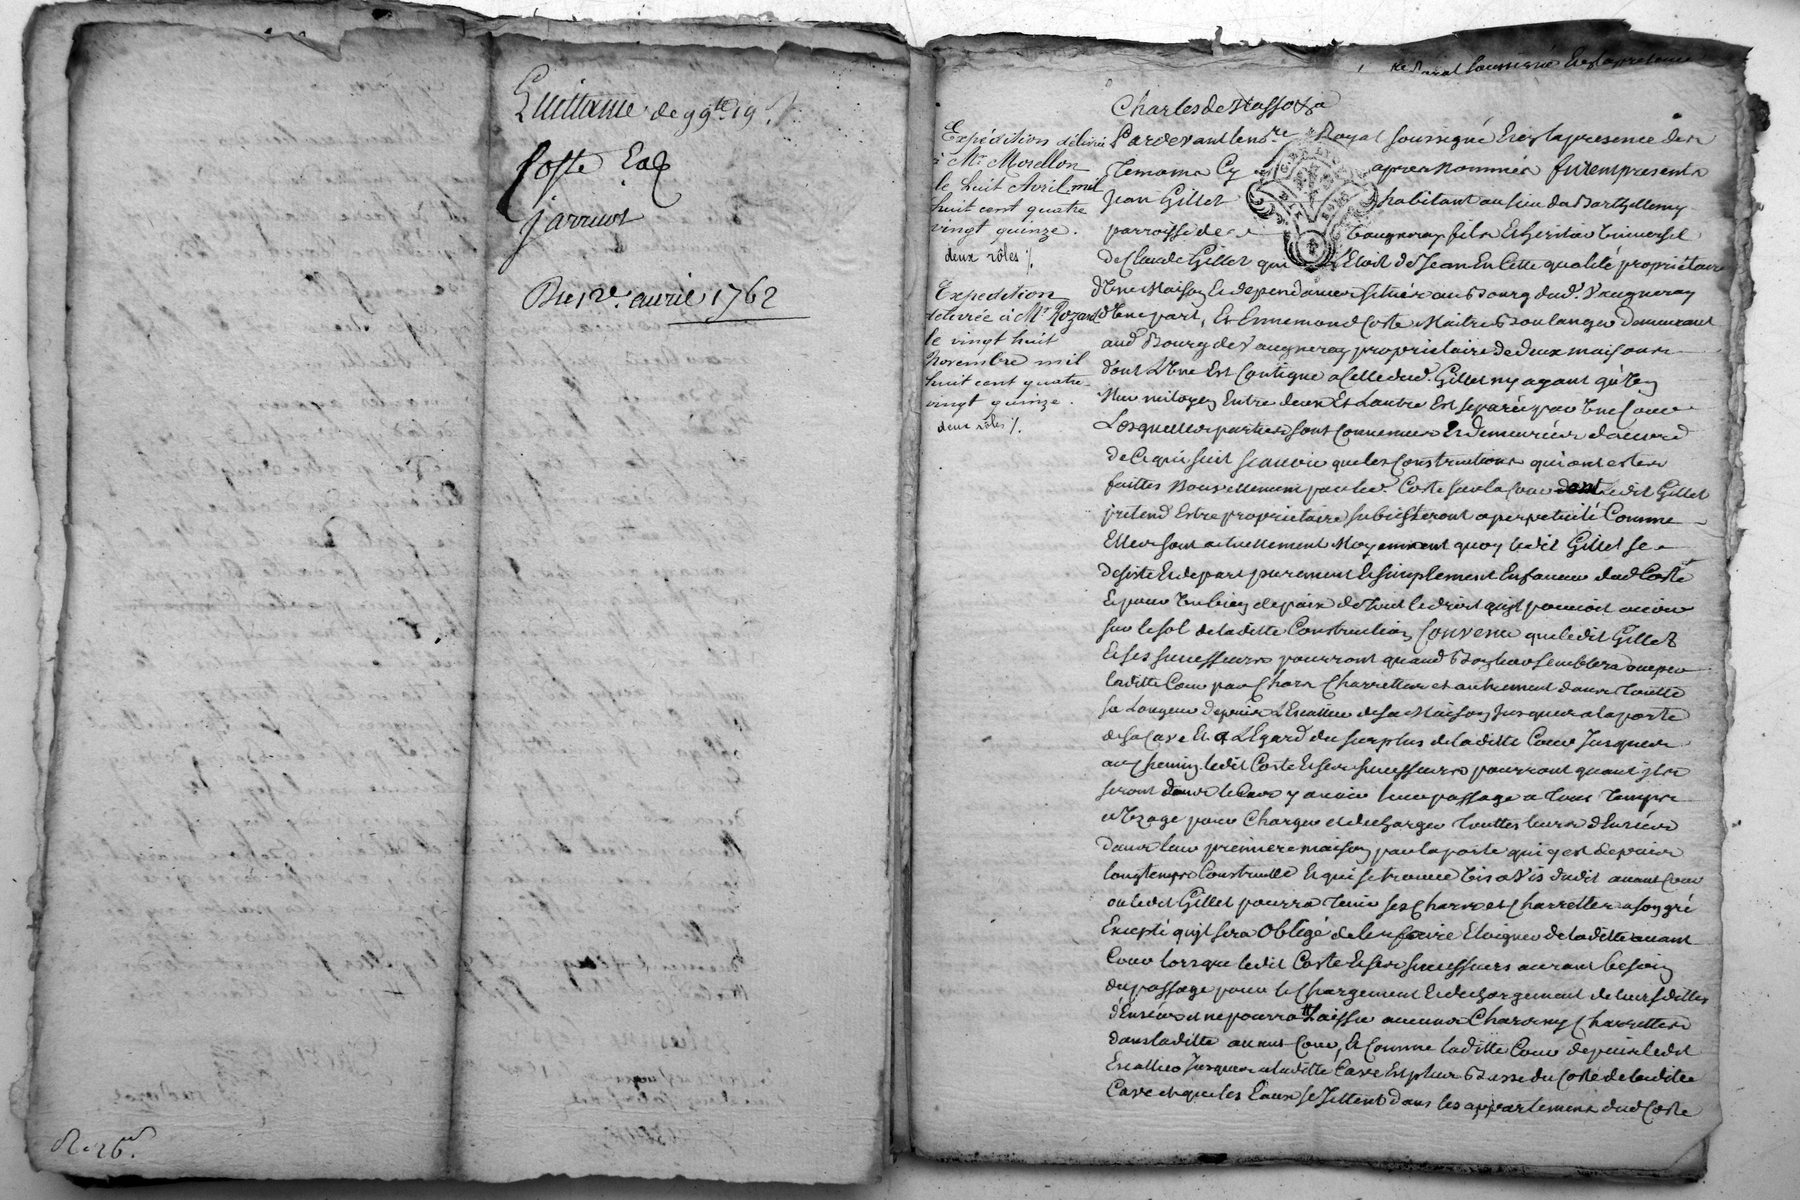 Quittance de 99tt 19 s
Coste
Du 12e. avril 1762
R. 26
soussigné Et En la presence
Expédition délivrée
à Mr Morellon
le huit Avril mil
huit cent quatre
vingt quinze.
deux rôles %.
Expédition
délivrée à Mr Rozand
le vingt huit
Novembre mil
huit cent quatre-
vingt quinze.
deux rôles %.
Pardevant le no.re Royal soussigné Et En la presence des
Temoins Cy apres nommés furent presents
Jean Gillet habitant au lieu du Barthellemy
parroisse de Vaugneray fils Et heritier Universel
de Claude Gillet qui L'Etoit de Jean En Cette qualité propriétaire
d'Une Maison Et dependances situées au Bourg dud. Vaugneray
d'Une part, Et Ennemond Coste Maitre Boulanger demeurant
aud Bourg de Vaugneray proprietaire de deux maisons
dont L'Une Est Contigue a Celle dud. Gillet ny ayant qu'Un
Mur mitoyen Entre deux Et L'autre Est separée par Une Cour
Lesquelles parties sont Convenues Et demeurées d'accord
de Ce qui suit scavoir que les Constructions qui ont estées
faittes Nouvellement par led. Coste sur la Cour dont ledit Gillet
prétend Estre proprietaire subsisteront a perpetuité Comme
Elles sont actuellement Moyennant quoy ledit Gillet se
desiste Et depart purement Et simplement En faveur dud Coste
Et pour Un bien de paix de Tout le droit qu'il pouvoit avoir
sur le sol de la ditte Construction Convenu que ledit Gillet
Et ses successeurs pourront quand Bon leur semblera
laditte Cour par Chars Charrettes et autrement dans Toutte
sa Longeur depuis L'Escallier de sa Maison Jusques a la porte
de sa Cave Et a L'Egard du surplus de laditte Cour Jusques
au Chemin ledit Coste Et ses successeurs pourront quant ils
seront dans le Cas y avoir leur passage a Tous Temps
et Uzage pour Charger et decharger Touttes leurs denrées
dans leur premiere maison par la porte qui y est depuis
longtemps Construitte Et qui se trouve Vis a Vis dudit avant Cour
ou ledit Gillet pourra Tenir ses Chars et Charrettes a son gré
Excepté qu'il sera Obligé de les faire Eloigner de laditte avant
Cour lorsque ledit Coste Et ses successeurs auront besoin
du passage pour le Chargement Et dechargement de leursdittes
denrées et ne pourra Laisser aucuns Chars ny Charrettes
dans laditte avant Cour, Et Comme laditte Cour depuis ledit
Escallier Jusques a laditte Cave Est plus Basse du Coté de laditte
Cave et que les Eaux se Jettent dans les appartements dud Coste